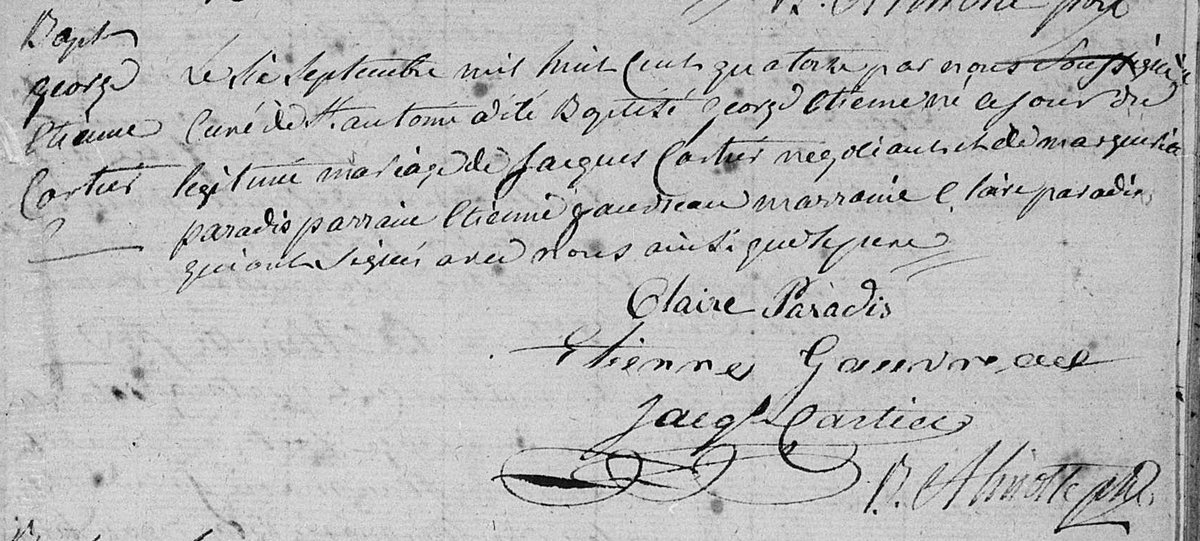 Bapt
george
Etienne
Cartier
Le six septembre mil huit Cent quatorze par nous Soussigné
Curé de St antoine a été Baptisé george Etienne né ce jour du
legitime mariage de Jacques Cartier negociant et de marguerite
paradis parrain Etienne gauvreau marraine Claire paradis
qui ont signés avec nous ainsi que le pere
Claire Paradis
Etienne Gauvreau
Jacqs Cartier
B. Alinotte ptre